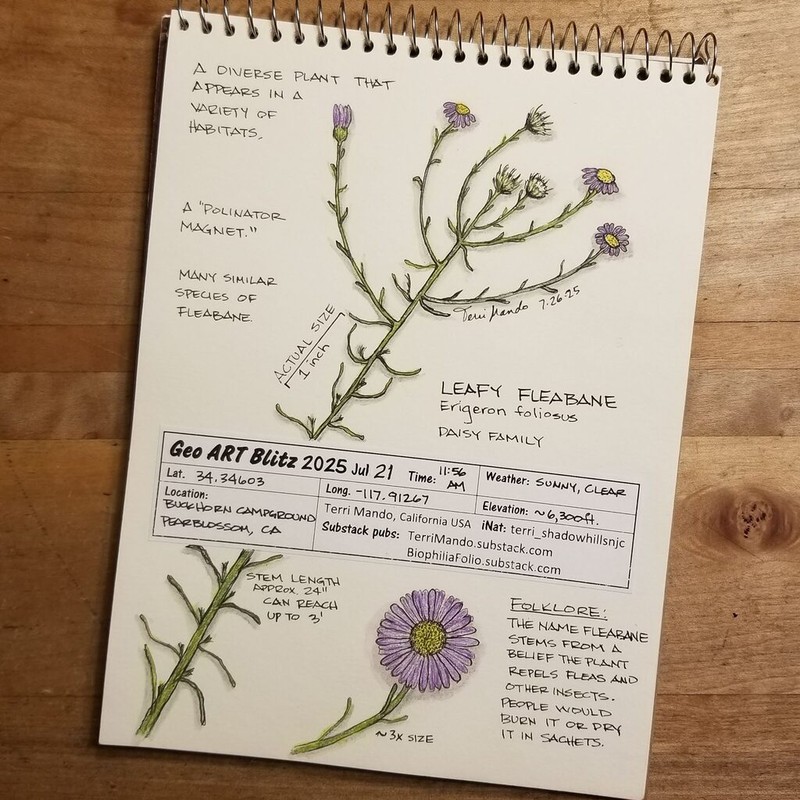 A DIVERSE PLANT THAT
APPEARS IN A
VARIETY OF
HABITATS,
A "POLINATOR
MAGNET."
MANY SIMILAR
SPECIES OF
FLEABANE.
Terri Mando 7.26.25
ACTUAL SIZE
1 inch
LEAFY FLEABANE
Erigeron foliosus
DAISY FAMILY
Geo ART Blitz 2025 Jul 21 Time: 11:56 AM
Weather: SUNNY, CLEAR
Lat. 34.34603
Long. -117.91267
Elevation: ~6,300ft.
Location:
BUCKHORN CAMPGROUND
PEARBLOSSOM, CA
Terri Mando, California USA iNat: terri_shadowhillsnjc
Substack pubs: TerriMando.substack.com
BiophiliaFolio.substack.com
STEM LENGTH
APPROX. 24"
CAN REACH
UP TO 3'
~3X SIZE
FOLKLORE:
THE NAME FLEABANE
STEMS FROM A
BELIEF THE PLANT
REPELS FLEAS AND
OTHER INSECTS.
PEOPLE WOULD
BURN IT OR DRY
IT IN SACHETS.